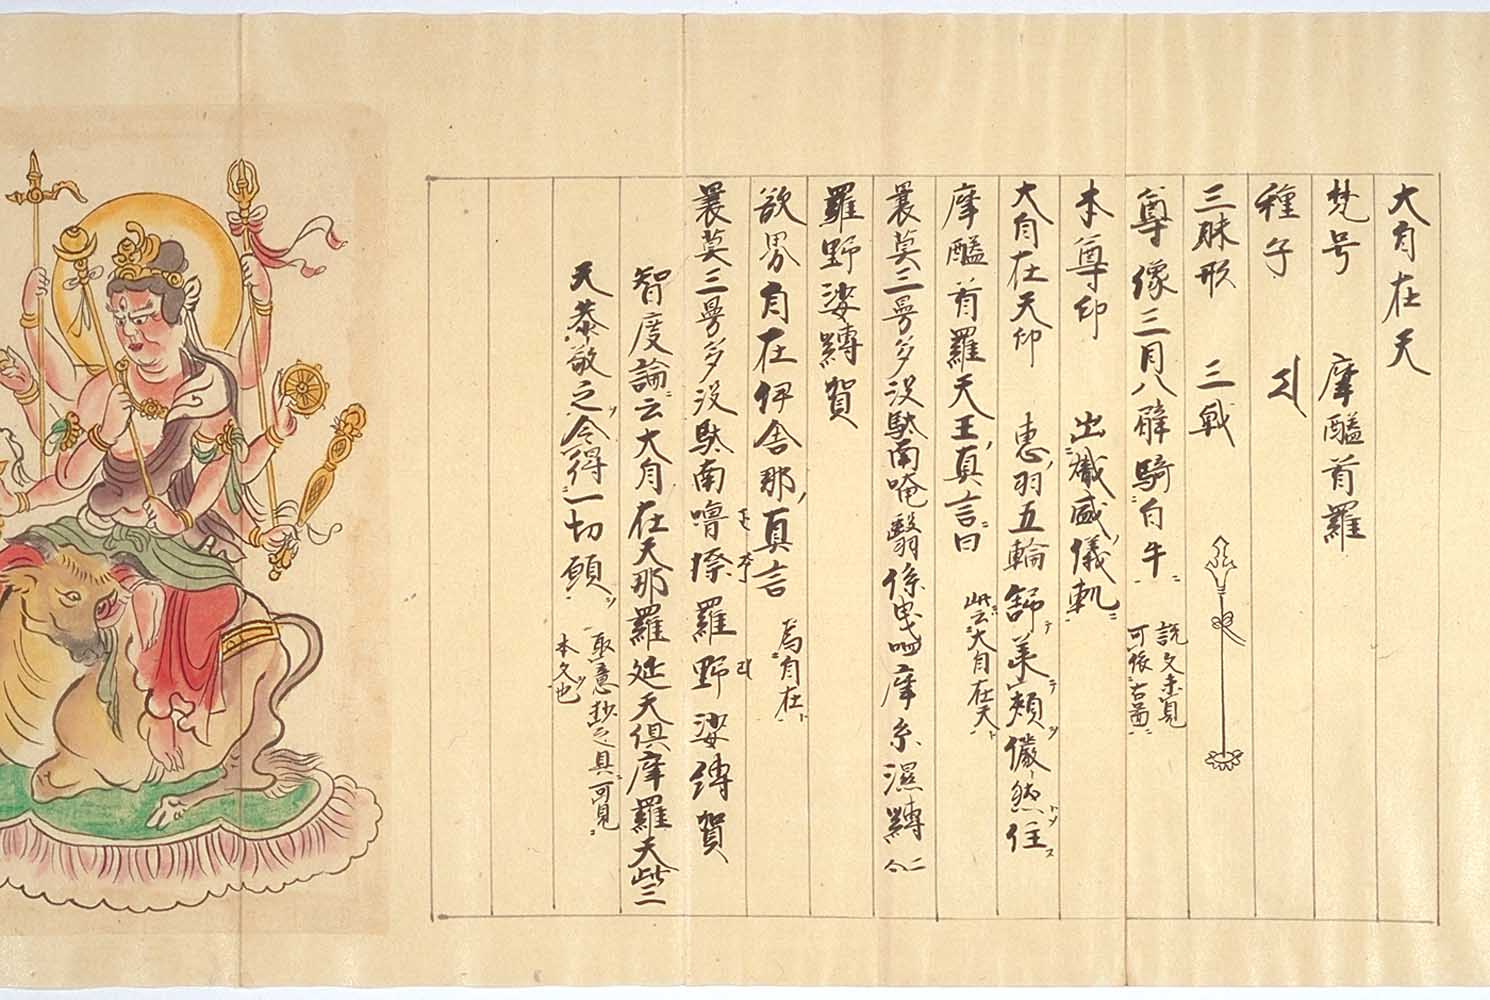 大自在天
梵号　摩醯首羅
種子
三昧形　三戟
尊像三目八臂騎白牛 説文未見 可依古図
本尊印　出熾盛儀軌
大自在天印　恵羽五輪舒 頬儼然住
摩醯首羅天王真言曰 此云大自在天
曩莫三曼多没駄南唵翳係曳呬摩系湿嚩
羅野娑嚩賀
欲界自在伊舎那真言 為自在
曩莫三曼多没駄南嚕捺羅野娑嚩賀
智度論云大自在天那羅延天倶摩羅天此三
天恭敬之令得一切願 取意抄之具可見 本文也